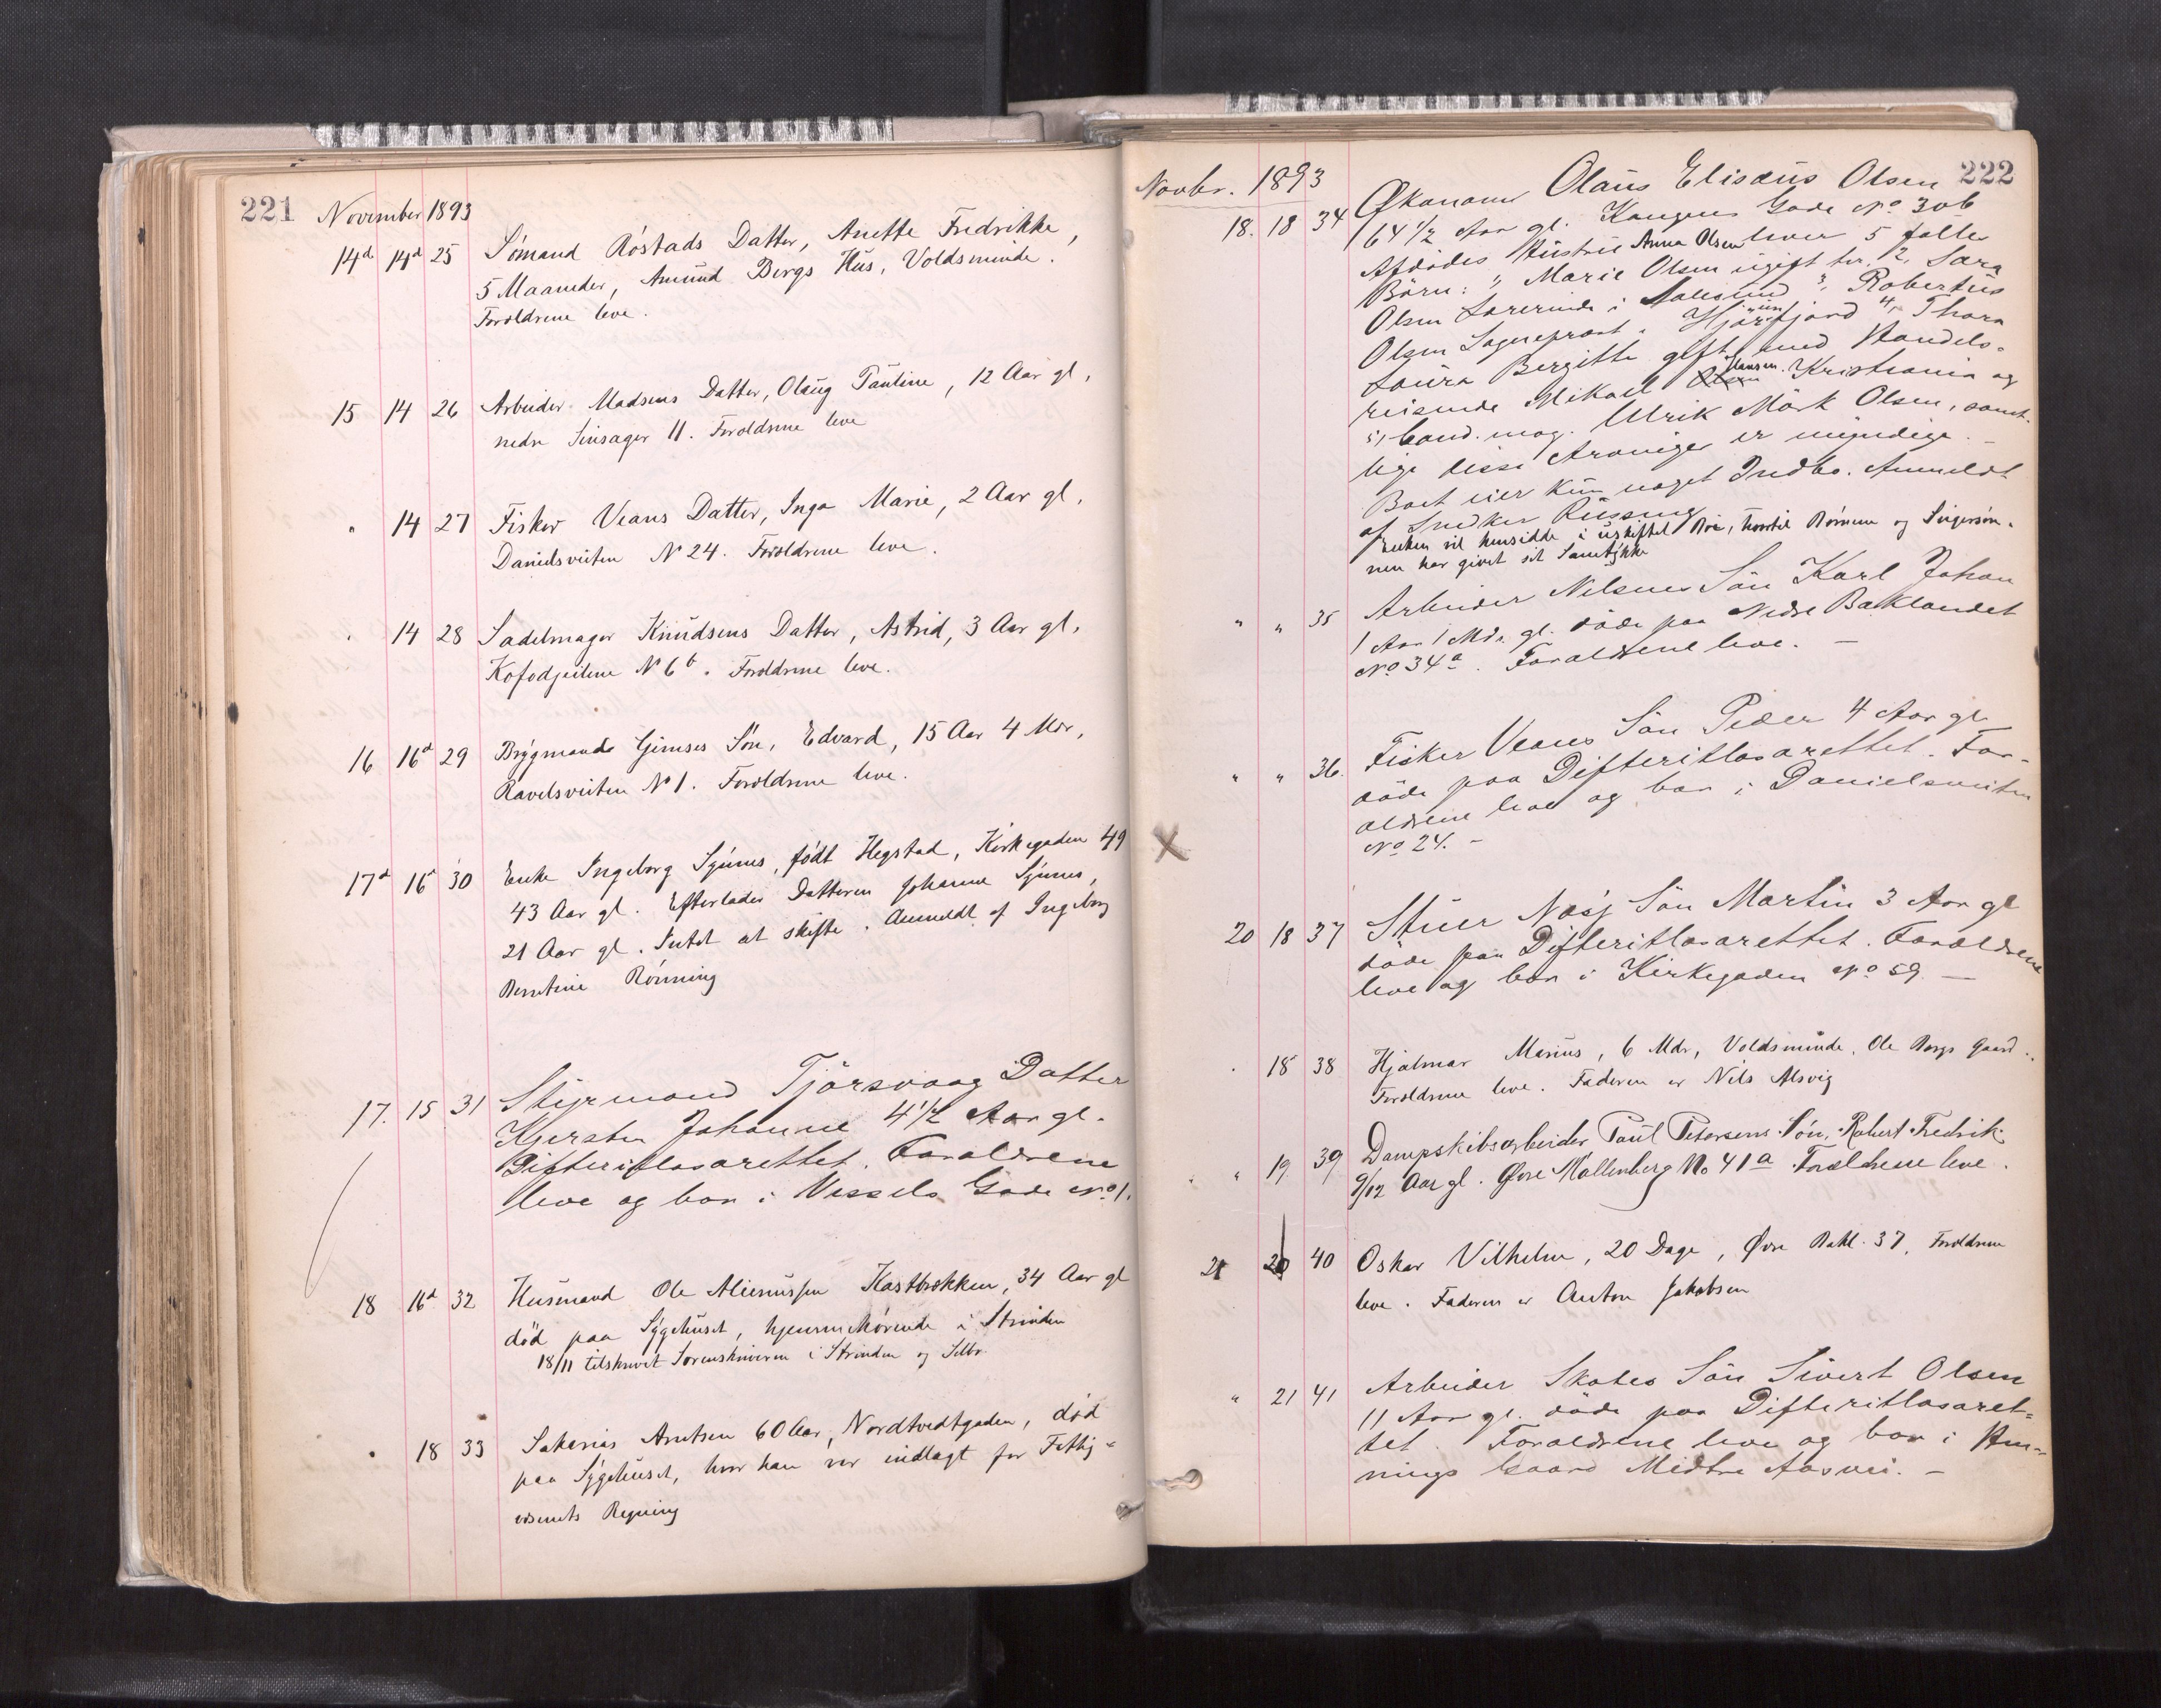 221 November 1893
14d 14d 25 Sømand Røstads Datter, Anette Fredrikke,
5 Maaneder, Amund Bergs Hus, Voldsminde.
Forældrene leve.
15 14 26 Arbeider Madsens Datter, Olaug Pauline, 12 Aar gl,
nedre Singsager 11. Forældrene leve
" 14 27 Fisker Veans Datter, Inga Marie, 2 Aar gl,
Danielsveiten N 24. Forældrene leve.
" 14 28 Sadelmager Knudsens Datter, Astrid, 3 Aar gl,
Kofodgeilene N 6b. Forældrene leve.
16 16d 29 Brygmand Gimses Søn, Edvard, 15 Aar 4 Mdr,
Ravelsveiten N 1. Forældrene leve.
17d 16d 30 Enke Ingeborg Sjunes, født Hegstad, Kirkegaden 49
43 Aar gl. Efterlader Datteren Johanne Sjunes,
21 Aar gl. Intet at skifte. Anmeldt af Ingeborg
Berntine Rønning
17. 15 31 Styrmand Tjørsvaag Datter
Kjersten Johanne 4½ Aar gl.
Difteritlasarettet. Forældrene
leve og bor i Vessels Gade No 1.
18 16d 32 Husmand Ole Aliernussen Kastbrekken, 34 Aar gl
død paa Sygehuset, hjemmehørende i Strinden
18/11 tilskrevet Sorenskriveren i Strinden og Selbu
" 18 33 Sakarias Arntsen 60 Aar, Nordtvedtgaden, død
paa Sygehuset, hvor han var indlagt for Fattig-
væsenets Regning
Novbr. 1893 222
18. 18 34 Økonom Olaus Elisæus Olsen
64½ Aar gl. Kongens Gade No 30b
Afdødes Hustru Anna Olsen lever 5 fælles
Börn: 1, Marie Olsen ugift her, 2, Sara
Olsen Lærerinde i Aalesund 3, Robertus
Olsen Sogneprest i Hjörundfjord 4, Thora
Laura Bergitte gift med Handels-
reisende Mikael Olsen Hansen. Kristiania og
5, Cand. mag. Ulrik Mörk Olsen, samt-
lige disse Arvinger er myndige. -
Boet eier kun noget Indbo. Anmeldt
af Snedker Russing
Enken vil hensidde i uskiftet Bo, hvortil Børnene og Svigersøn-
nen har givet sit Samtykke
" " 35 Arbeider Nilsens Sön Karl Johan
1 Aar 1 Mdr. gl. döde paa Nedre Baklandet
No 34a. Forældrene leve. -
" " 36. Fisker Veans Sön Peder 4 Aar gl
döde paa Difteritlasarettet. For-
ældrene leve og bor i Danielsveiten
No 24. -
20 18 37 Stuer Næss Sön Martin 3 Aar gl
döde paa Difteritlasarettet. Forældrene
leve og bor i Kirkegaden No 59. -
" 18 38 Hjalmar Marius, 6 Mdr, Voldsminde, Ole Bergs Gaard.
Forældrene leve. Faderen er Nils Alsvig
" 19 39 Dampskibsarbeider Paul Petersens Søn, Robert Fredrik,
9/12 Aar gl. Øvre Møllenberg No 41a Forældrene leve.
21 20 40 Oskar Vilhelm, 20 Dage, Øvre Bakl. 37, Forældrene
leve. Faderen er Anton Jakobsen
" 21 41 Arbeider Skotes Sön Sivert Olsen
11 Aar gl. döde paa Difteritlasaret-
tet. Forældrene leve og bor i Hen-
nings Gaard Midtre Aasvei. -